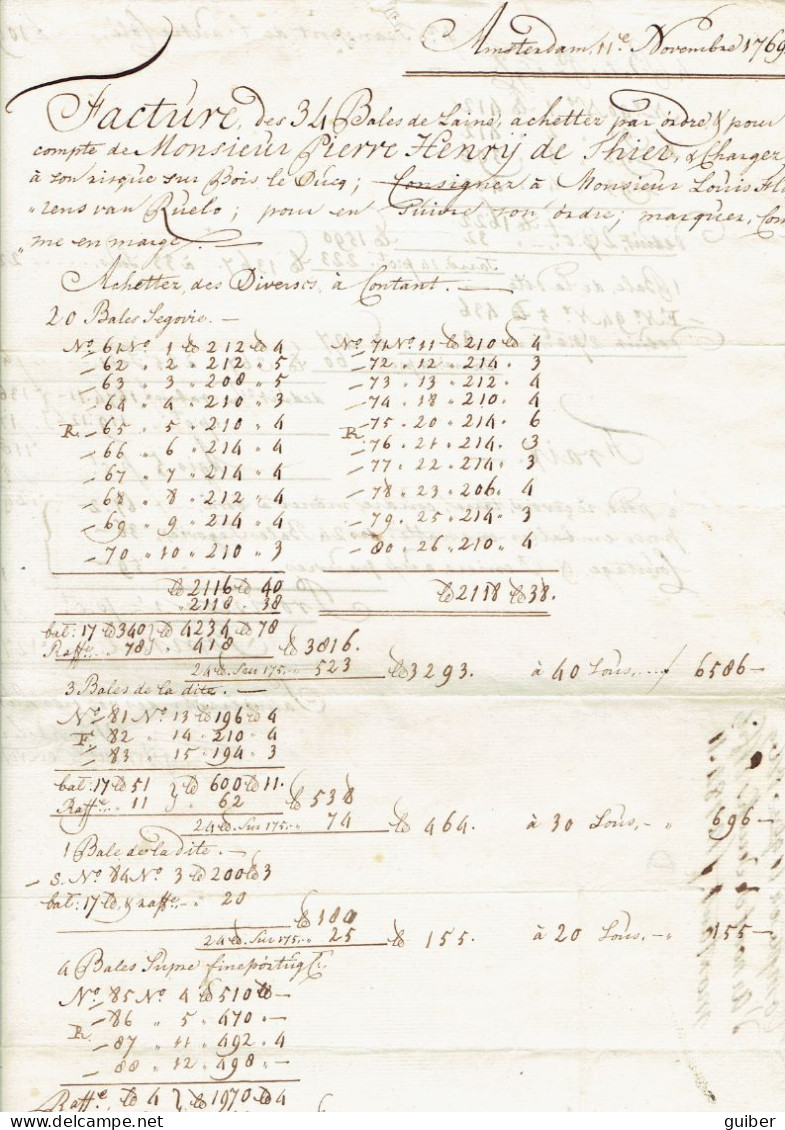 Amsterdam, 11.e Novembre 1769.
Facture, des 34 Bales de Laine, achetter par ordre & pour
compte de Monsieur Pierre Henry de Thier, & Charger
à son risque sur Bois le Ducq; Consignez à Monsieur Louis
rens van Ruelo; pour en suivre son ordre; marquer, Com
me en marge. —
Achetter, des Diverses, à Contant. —
20 Bales Segovie. —
N.o 61 N.o 1 lb 212 lb 4 N.o 71 N.o 11 lb 210 lb 4
— 62 " 2 " 212 " 5 — 72 " 12 " 214 " 3
— 63 " 3 " 208 " 5 — 73 " 13 " 212 " 4
— 64 " 4 " 210 " 3 — 74 " 18 " 210 " 4
R. — 65 " 5 " 210 " 4 R. — 75 " 20 " 214 " 6
— 66 " 6 " 214 " 4 — 76 " 21 " 214 " 3
— 67 " 7 " 214 " 4 — 77 " 22 " 214 " 3
— 68 " 8 " 212 " 4 — 78 " 23 " 206 " 4
— 69 " 9 " 214 " 4 — 79 " 25 " 214 " 3
— 70 " 10 " 210 " 3 — 80 " 26 " 210 " 4
lb 2116 lb 40 lb 2118 lb 38.
" 2118 " 38
bat: 17 lb 340 } lb 4234 lb 78
Raff.e " 78 } " 418 lb 3816.
24 lb. Sur 175 " 523 lb 3293. à 40 Sous, — f 6586 —
3 Bales de la dite. —
N.o 81 N.o 13 lb 196 lb 4
F. 82 " 14 " 210 " 4
— 83 " 15 " 194 " 3
bat: 17 lb 51 } lb 600 lb 11.
Raff.e " 11 } " 62 lb 538
24 lb. Sur 175 " 74 lb 464. à 30 Sous, — " 696 —
1 Bale de la dite. —
— S. N.o 84 N.o 3 lb 200 lb 3
bat: 17 lb, & raff.e — 20
lb 180
24 lb. Sur 175 " 25 lb 155. à 20 Sous, — " 155 —
4 Bales Supre fine
N.o 85 N.o 4 lb 510 lb —
R. — 86 " 5 " 470 " —
— 87 " 11 " 492 " 4
— 88 " 12 " 498 " —
Raff.e, lb 4 } lb 1970 lb 4
guiber